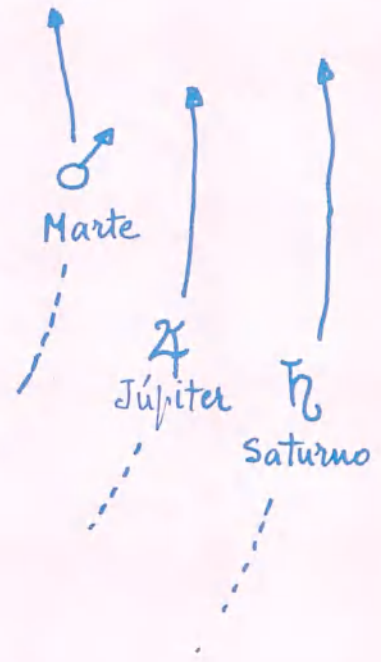 ♂
Marte
♃
Júpiter
♄
Saturno